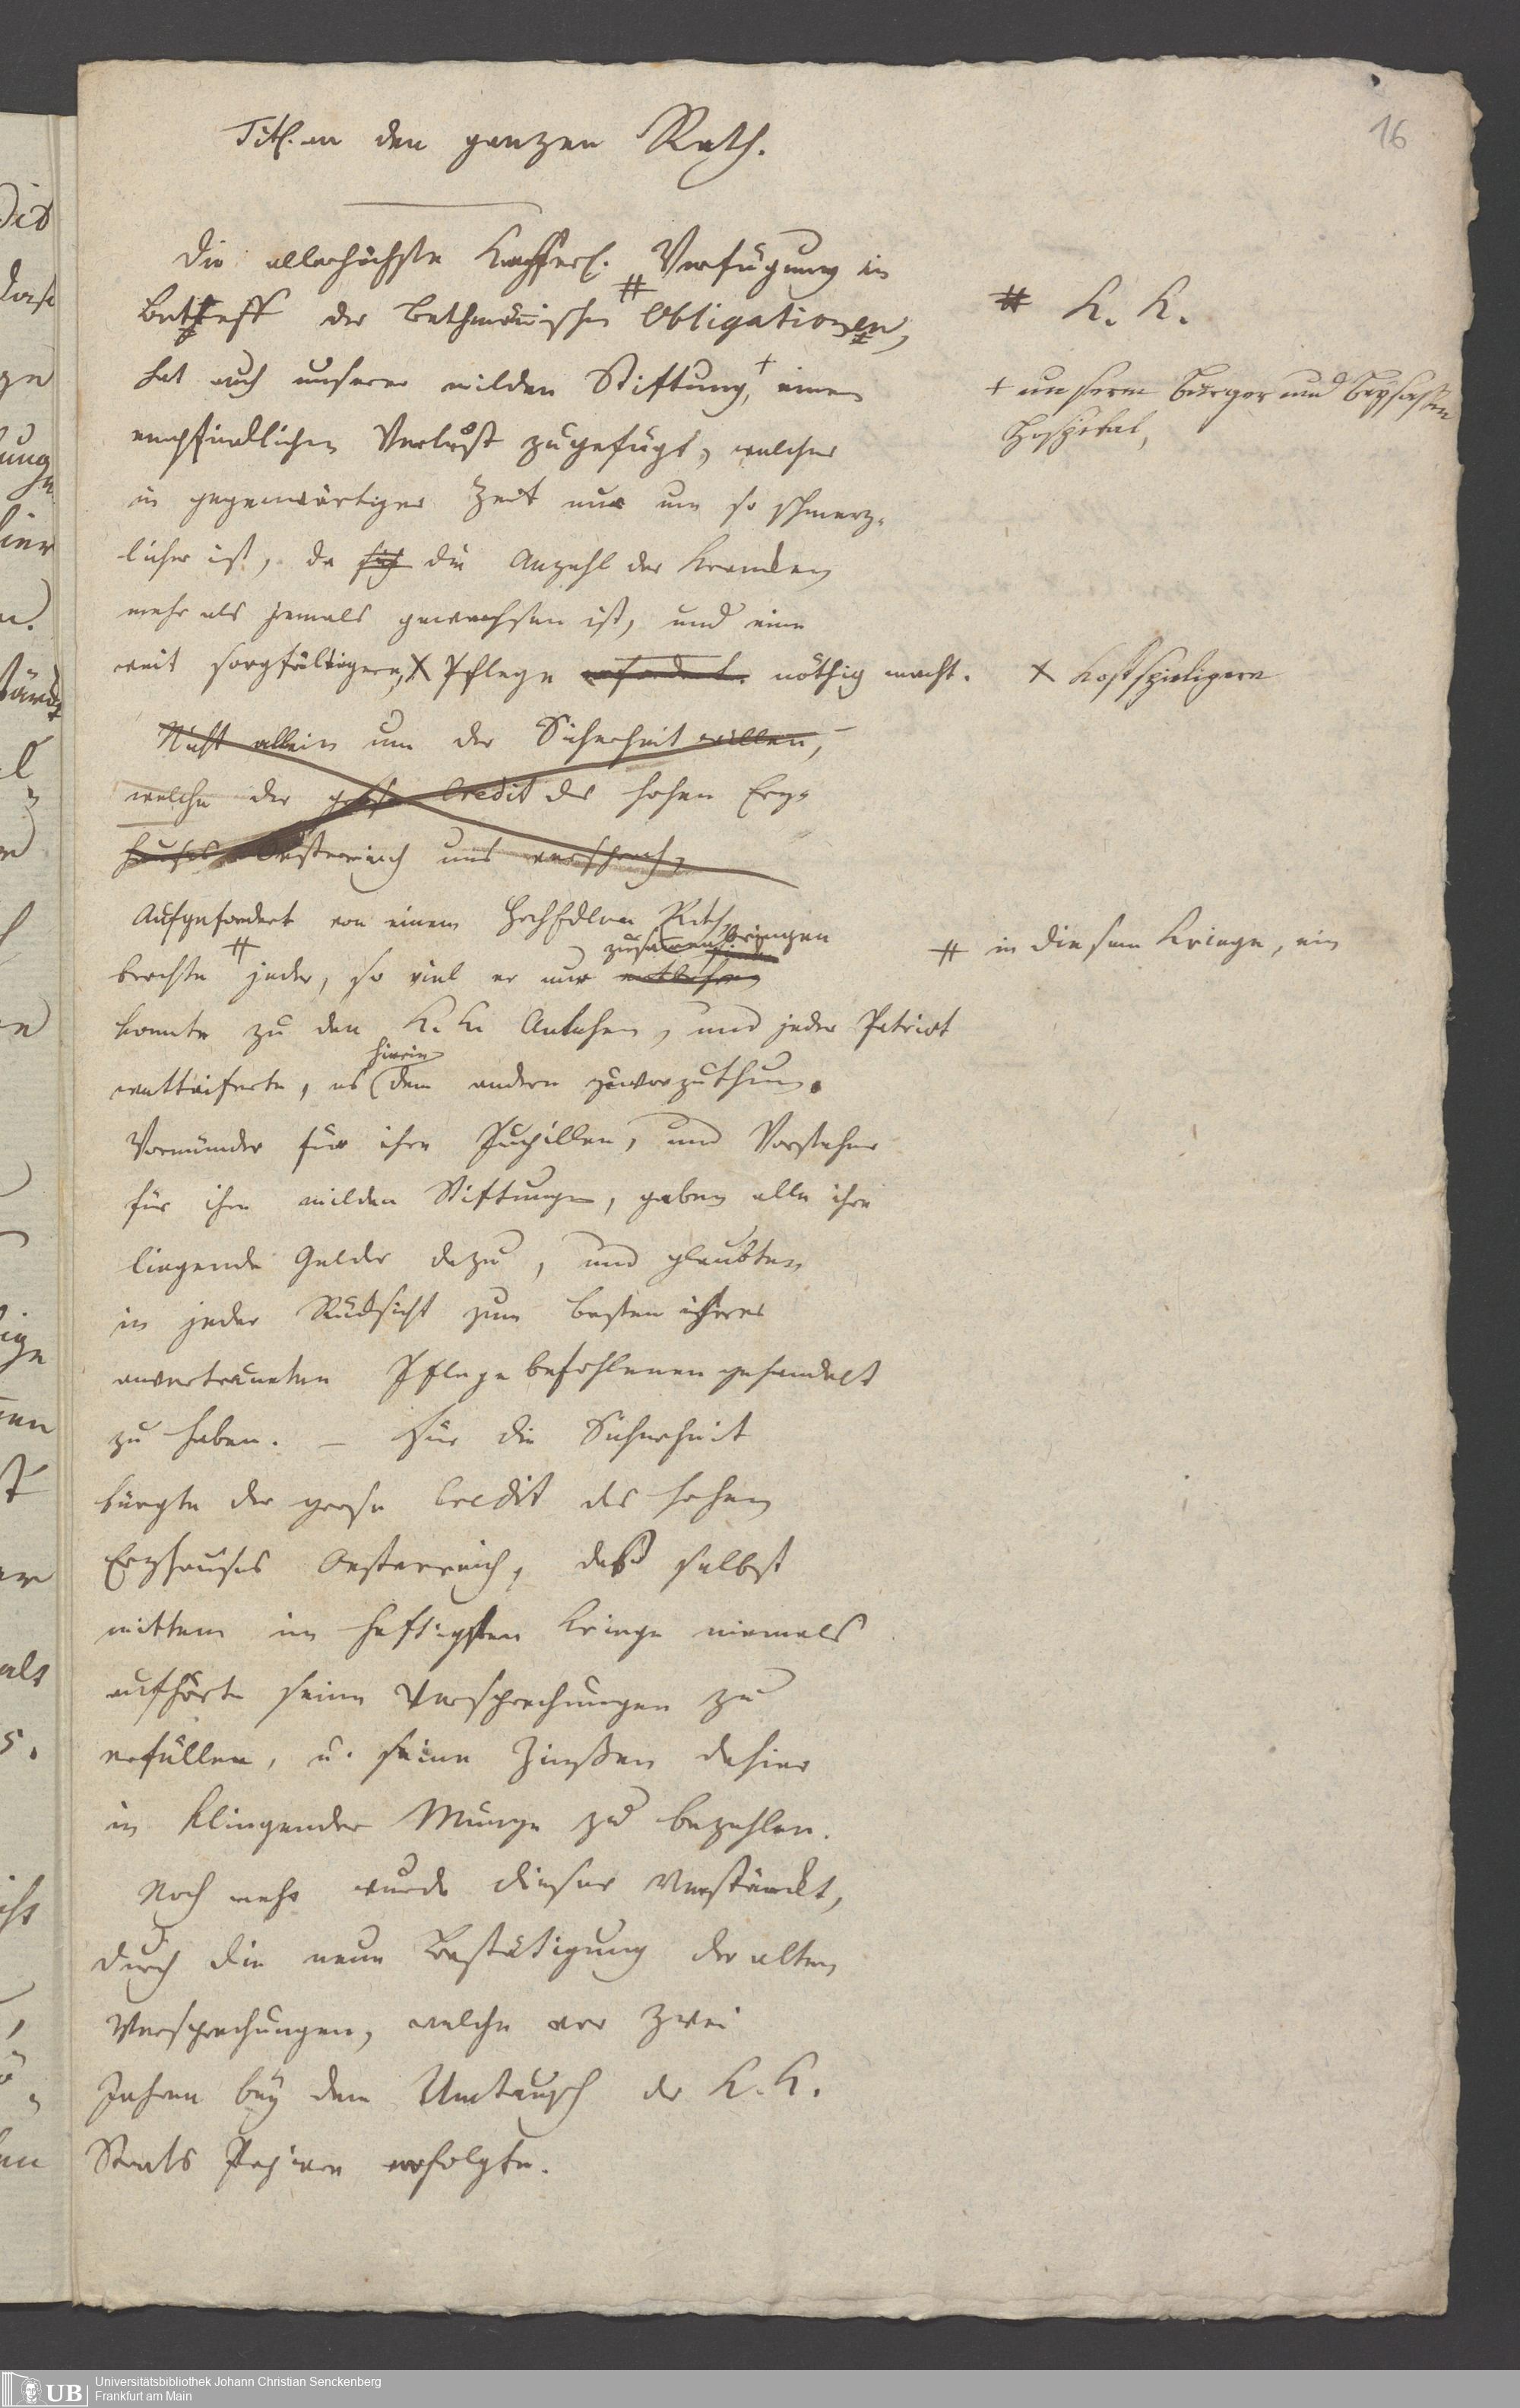 16
Titl. an den ganzen Rath.
Die allerhöchste Kayserl. Verfügung in
Betreff der Bethmännischen # Obligationen,
# K. K.
hat auch unserer milden Stiftung, + einen
+ unserm Bürger und Beysassen
Hospital,
empfindlichen Verlust zugefügt, welcher
in gegenwärtiger Zeit nur um so schmerz-
licher ist, da sich die Anzahl der Kranken
mehr als jemals gewachsen ist, und eine
weit sorgfältigere, X Pflege erfordert. nöthig macht.
X kostspieligere
Nicht allein um der Sicherheit willen,
welche der große Credit des hohen Erz-
hauses Oesterreich uns versprach,
Aufgefordert von einem HochEdlen Rath
zusammenbringen
brachte # jeder, so viel er nur entlehnen
# in diesem Kriege, ein
konnte zu den K. K. Anlehen, und jeder Patriot
hierin
wetteiferte, es dem andern zuvorzuthun.
Vormünder für ihre Pupillen, und Vorsteher
für ihre milden Stiftungen, gaben alle ihre
liegende Gelder dazu, und glaubten
in jeder Rücksicht zum besten ihrer
anvertrauten Pflegebefohlenen gehandelt
zu haben. – Für die Sicherheit
bürgte der grose Credit des hohen
Erzhauses Oesterreich, daß selbst
mitten im heftigsten Kriege niemals
aufhörte seine Versprechungen zu
erfüllen, u. seine Zinßen dahier
in klingender Münze zu bezahlen.
Noch mehr wurde dieser verstärckt,
durch die neue Bestätigung der alten
Versprechungen, welche vor zwei
Jahren bey dem Umtausch der K. K.
Staats Papiere erfolgte.
UB
Universitätsbibliothek Johann Christian Senckenberg
Frankfurt am Main